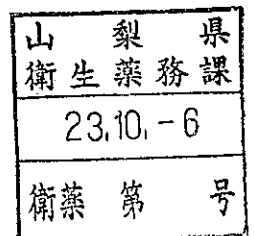 山梨県
衛生薬務課
23.10.-6
衛薬第　　号